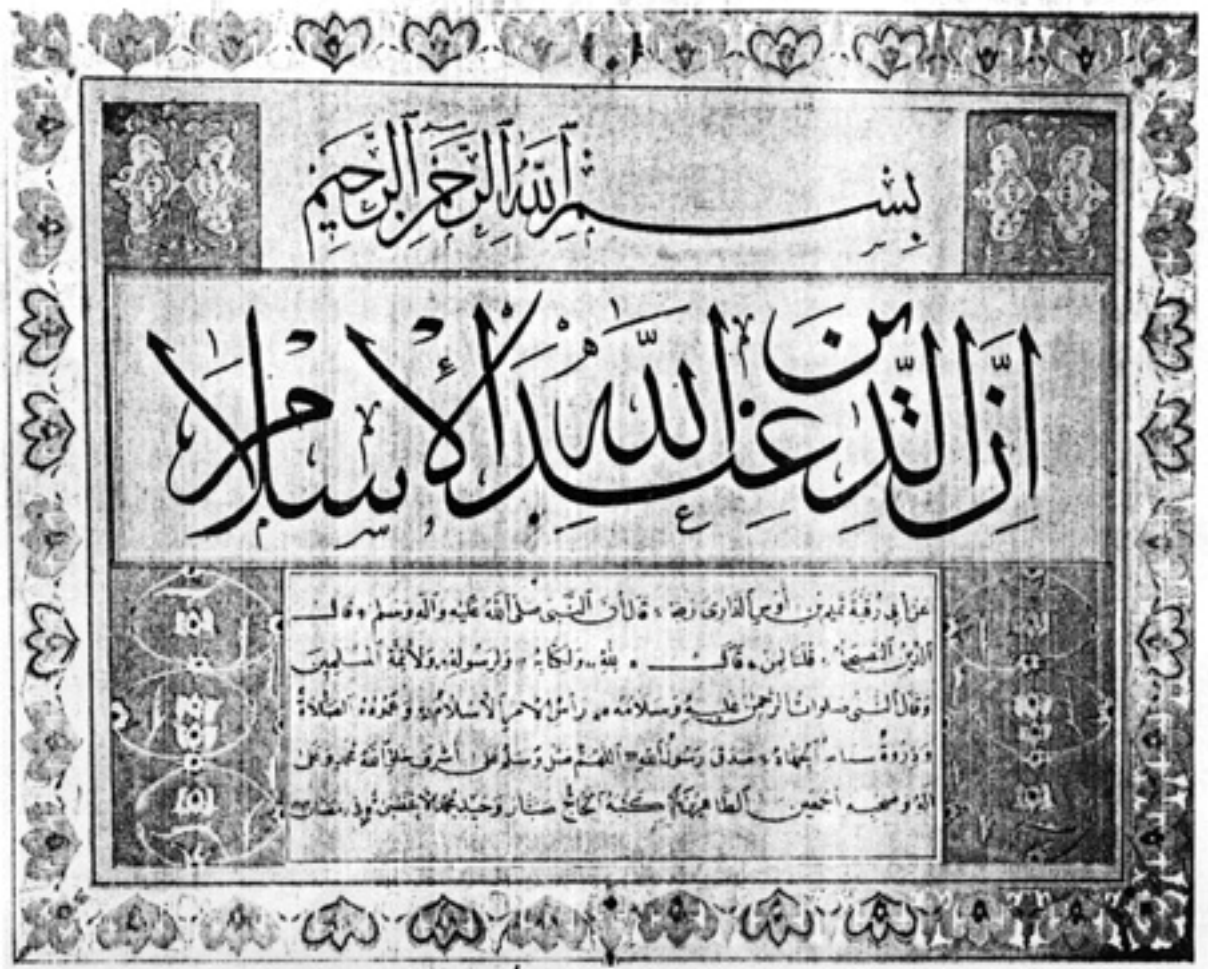 بِسْمِ اللهِ الرَّحْمٰنِ الرَّحِيمِ
اِنَّ الدِّينَ عِندَ اللهِ الْإِسْلَامُ
عن أبي رقية تميم بن أوس الداري رضه قال أن النبي صلى الله عليه وآله وسلم قال
الدين النصيحة قلنا لمن قال لله ولكتابه ولرسوله ولأئمة المسلمين
وقال النبي صلوات الرحمن عليه وسلامه رأس الامر الاسلام وعموده الصلاة
وذروة سنامه الجهاد صدق رسول الله اللهم صل وسلم على أشرف خلق الله محمد وعلى
آله وصحبه أجمعين الطاهرين كتبه الحاج